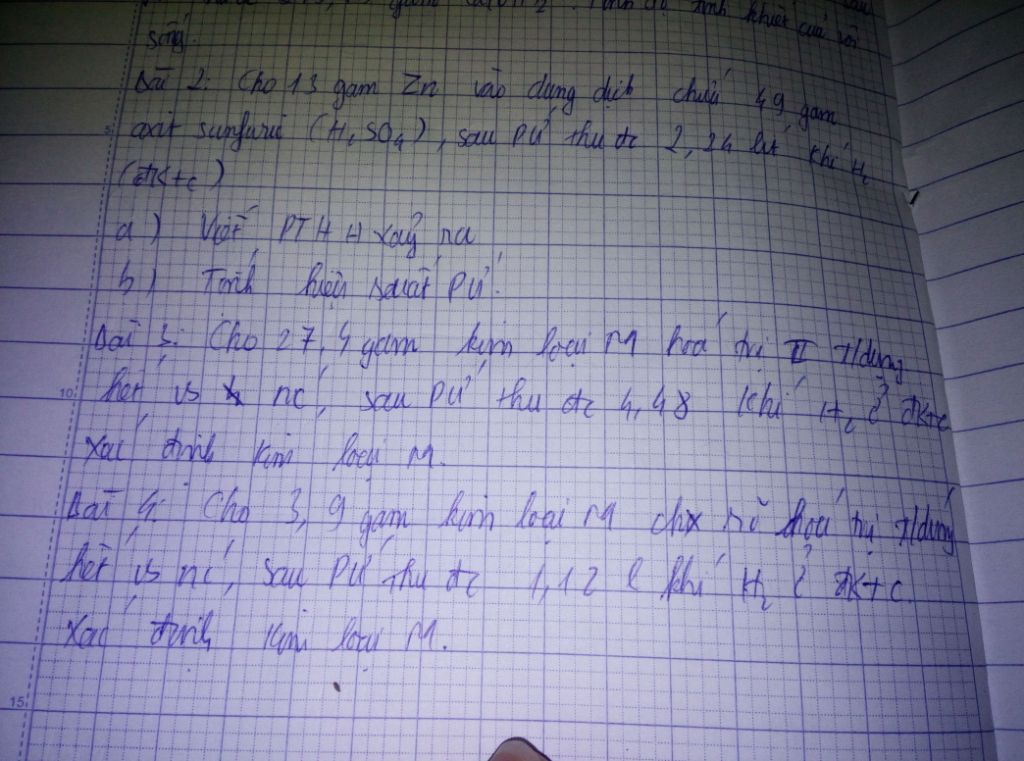 gam Ca(OH)2. Tính độ tinh khiết của vôi
sống.
Bài 2: Cho 13 gam Zn vào dung dịch chứa 49 gam
axit sunfuric (H2SO4), sau PƯ thu đc 2,24 lít khí H2
(đktc)
a) Viết PTHH xảy ra
b) Tính hiệu suất PƯ.
Bài 3: Cho 27,4 gam kim loại M hoá trị II t/dụng
hết vs nc, sau PƯ thu đc 4,48 khí H2 ở đktc
Xác định kim loại M.
Bài 4: Cho 3,9 gam kim loại M chx rõ hoá trị t/dụng
hết vs nc, sau PƯ thu đc 1,12 l khí H2 ở đktc.
Xác định kim loại M.
5
10
15